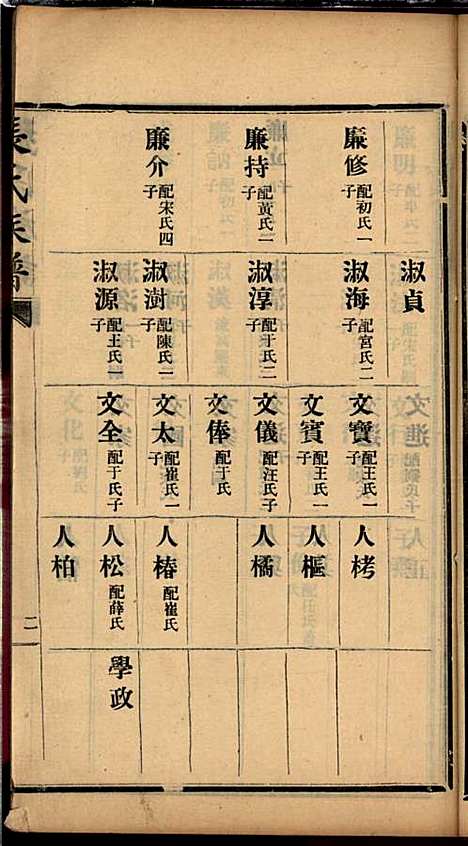 淑貞
廉修 配初氏一子
淑海 配宮氏二子
文寶 配王氏一子
人栲
文賓 配王氏一子
人樞
廉持 配黃氏一子
淑淳 配于氏二子
文儀 配汪氏子
人橘
文俸 配于氏
廉介 配宋氏四子
淑澍 配陳氏二子
文太 配崔氏一子
人椿 配崔氏
淑源 配王氏一子
文全 配于氏子
人松 配薛氏
學政
人柏
氏族譜
二